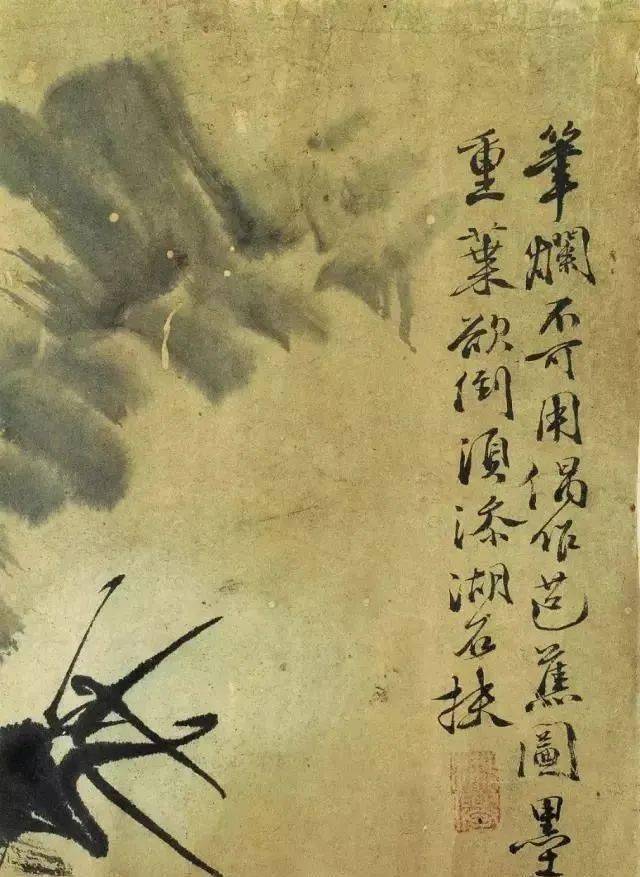 筆爛不可用偶作芭蕉圖墨
重葉欲倒須添湖石扶